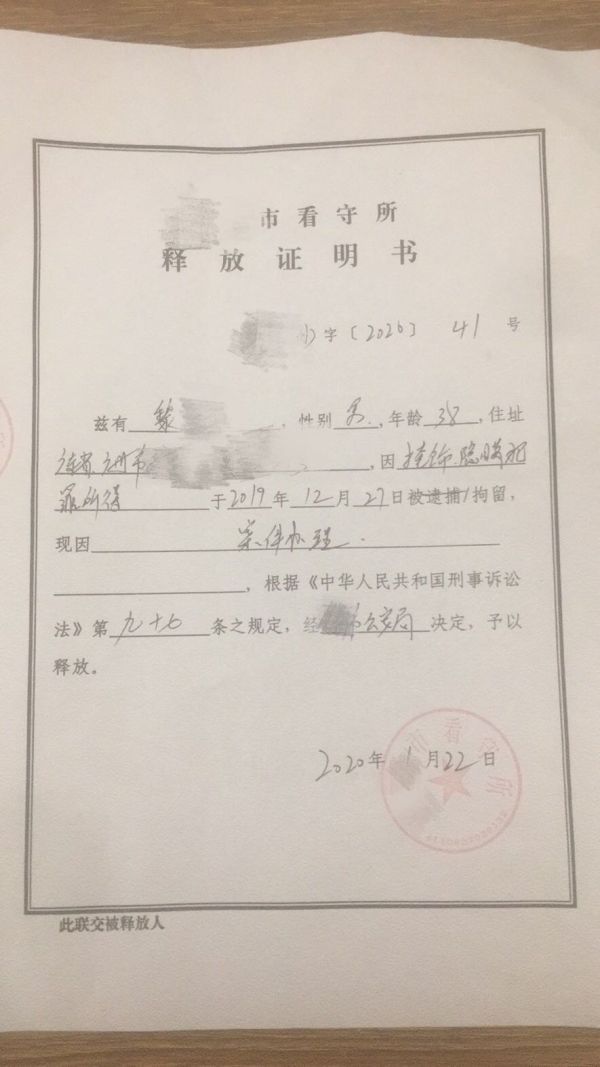 市看守所
释放证明书
字〔2020〕 41 号
兹有 ，性别 男 ，年龄 38 ，住址
，因 掩饰、隐瞒犯
罪所得 于2019年12月27日被逮捕/拘留，
现因 案件办理
，根据《中华人民共和国刑事诉讼
法》第 九十七 条之规定，经 公安局 决定，予以
释放。
市看守所
2020年1月22日
此联交被释放人